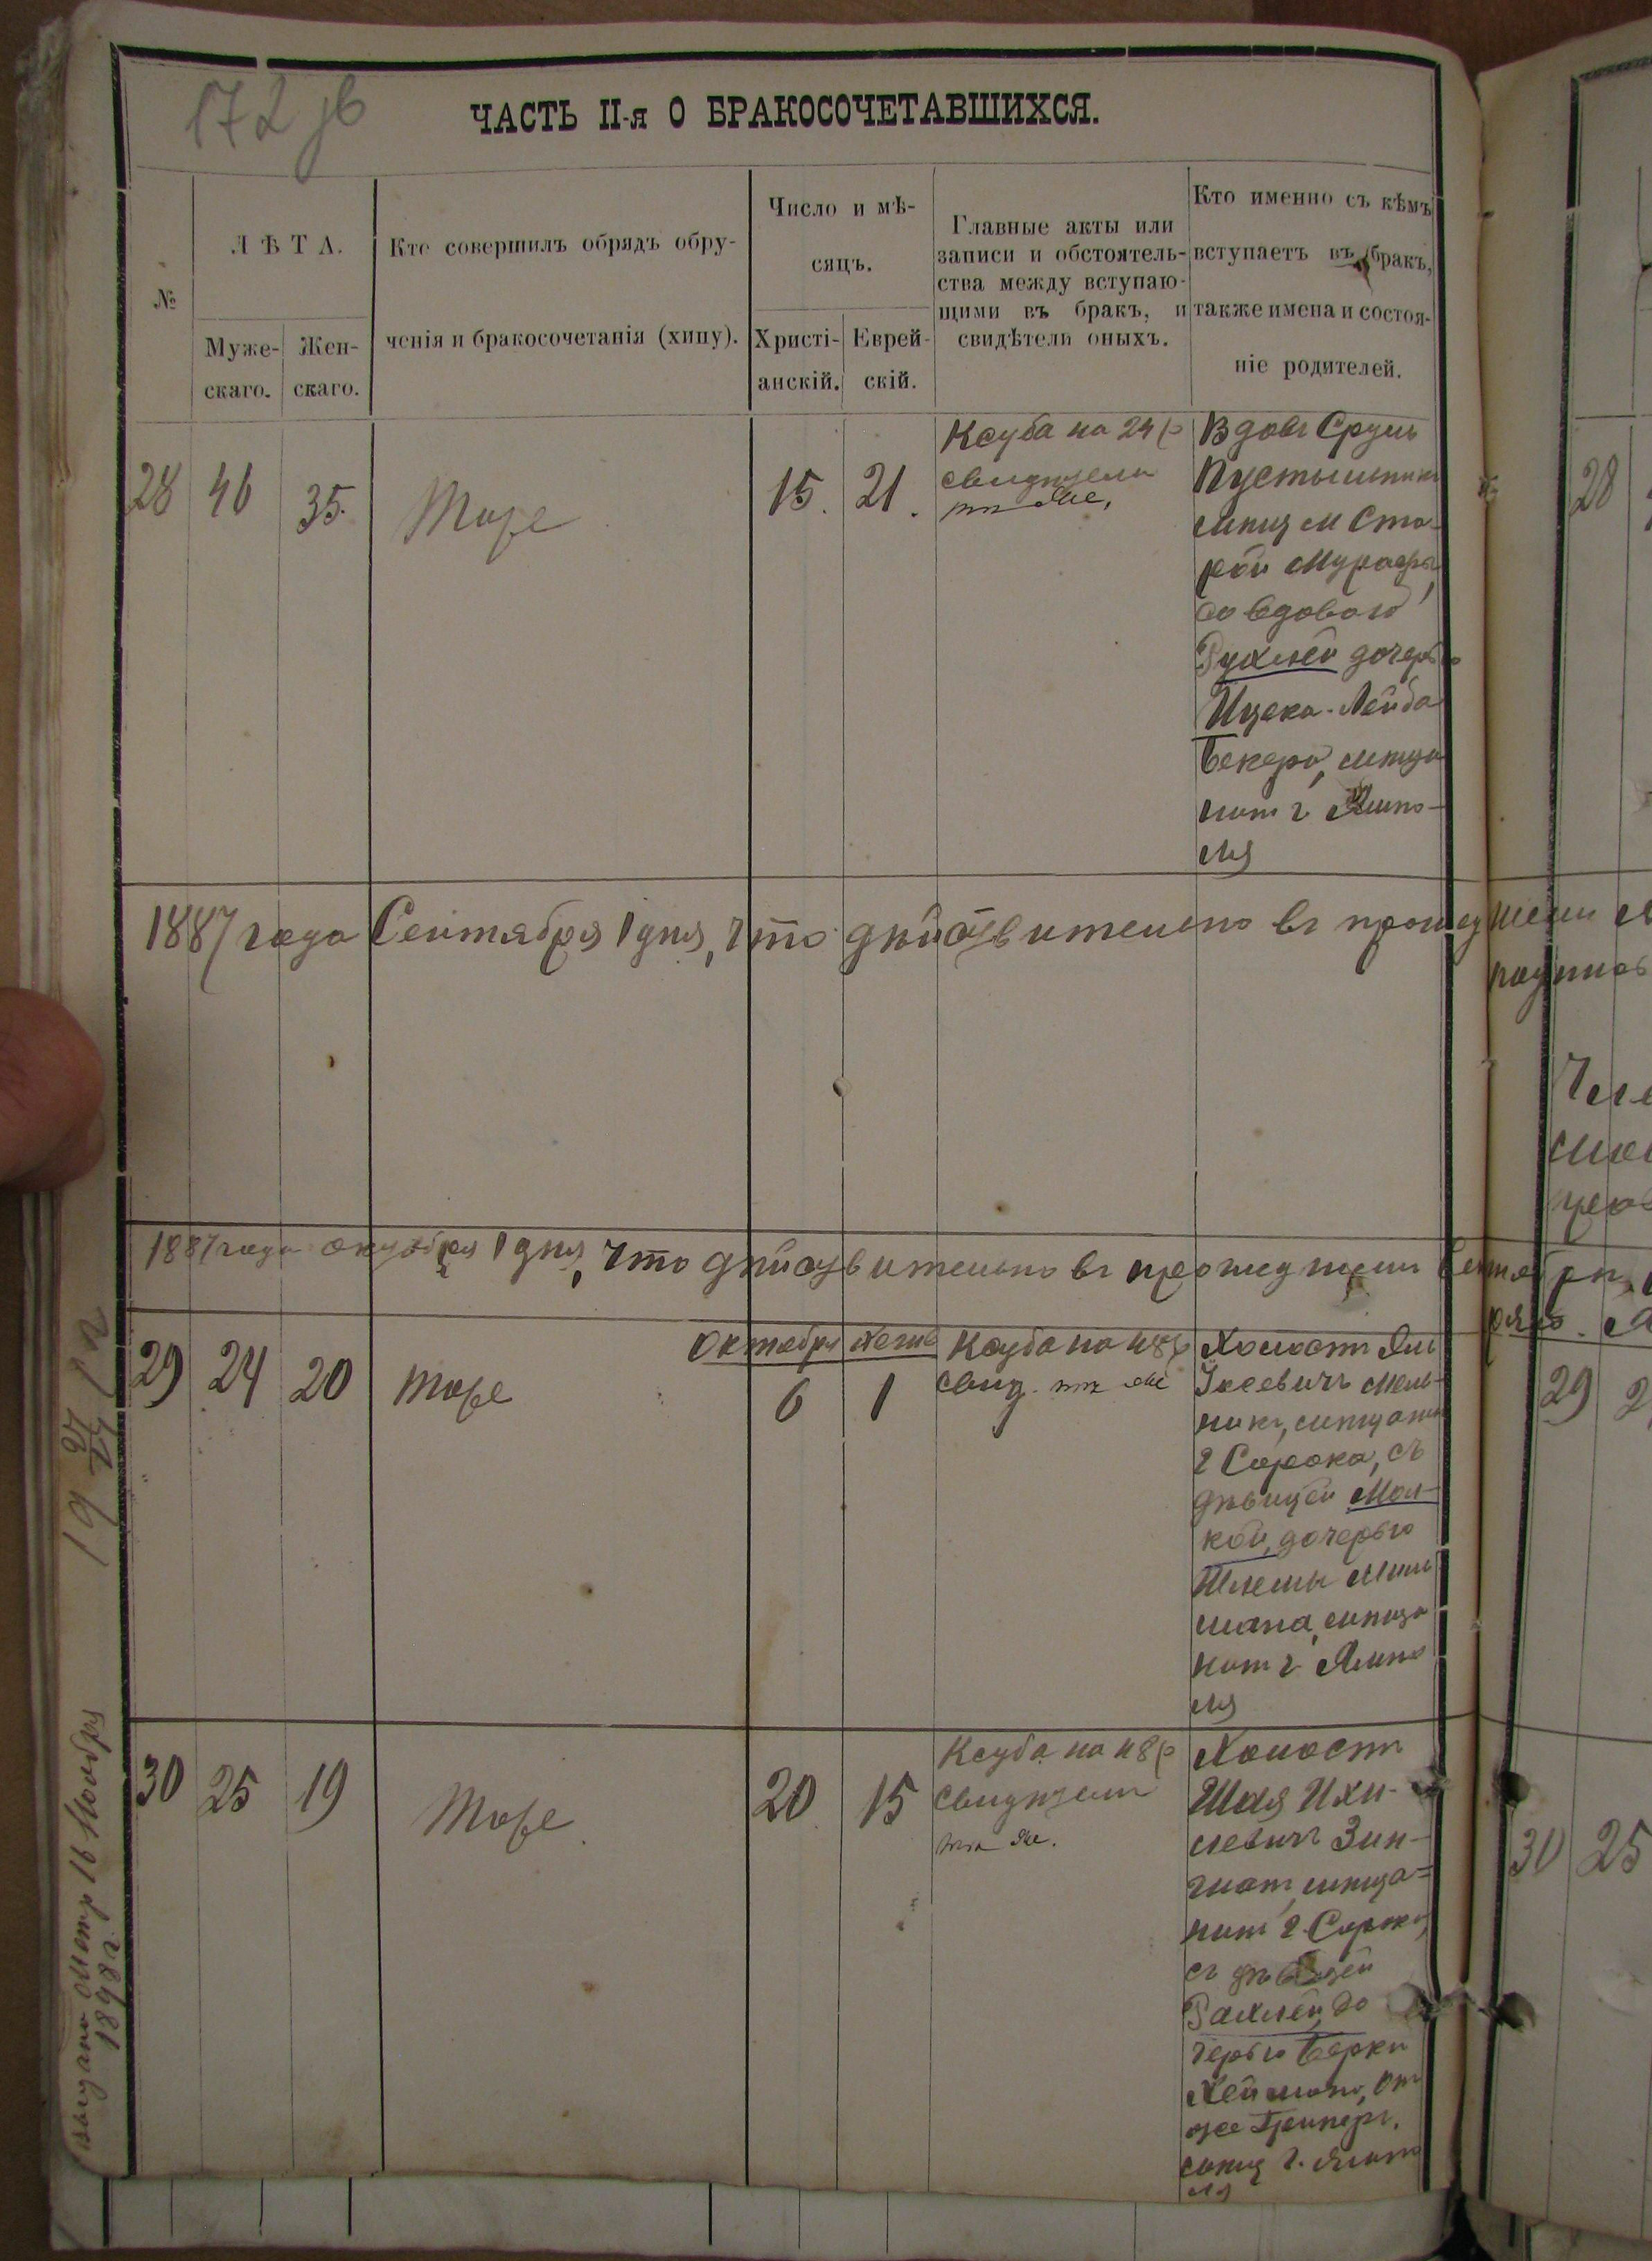 172 зв
ЧАСТЬ II-я О БРАКОСОЧЕТАВШИХСЯ.
№
ЛѢТА.
Муже-
скаго.
Жен-
скаго.
Кто совершилъ обрядъ обру-
ченія и бракосочетанія (хипу).
Число и мѣ-
сяцъ.
Христі-
анскій.
Еврей-
скій.
Главные акты или
записи и обстоятель-
ства между вступаю-
щими въ бракъ, и
свидѣтели оныхъ.
Кто именно съ кѣмъ
вступаетъ въ бракъ,
также имена и состоя-
ніе родителей.
28 46 35. Тоже 15. 21.
Ксуба на 24 р
свидѣтели
тѣ же,
Вдовъ Сруль
Пустыльникъ
мѣщ м Ста-
рой Мурафы,
со вдовою
Рухлей дочерью
Ицека-Лейба
Бекера, мѣща
нинъ г Ямпо-
ля
1887 года Сентября 1 дня, что дѣйствительно въ прошедшемъ
1887 года октября 1 дня, что дѣйствительно въ прошедшемъ Сентябрѣ
29 24 20 Тоже
Октября
6 1
Ксуба на 48 р
свид. тѣ же
Холостъ
Мель-
никъ, мѣщанинъ
г Сорока, съ
дѣвицей Мал-
кой, дочерью
Шлемы
мѣща
нинъ г Ямпо
ля
30 25 19 Тоже 20 15
Ксуба на 48 р
свидѣтели
тѣ же.
Холостъ
Шая Ихи-
левичъ Зин-
мѣща=
нинъ г. Сороки,
съ дѣвицей
Рахлей, до
черью Берки
мѣщ г. Ямпо
ля
выдано Метр 16 Ноября
1898 г.
28
29
30 25